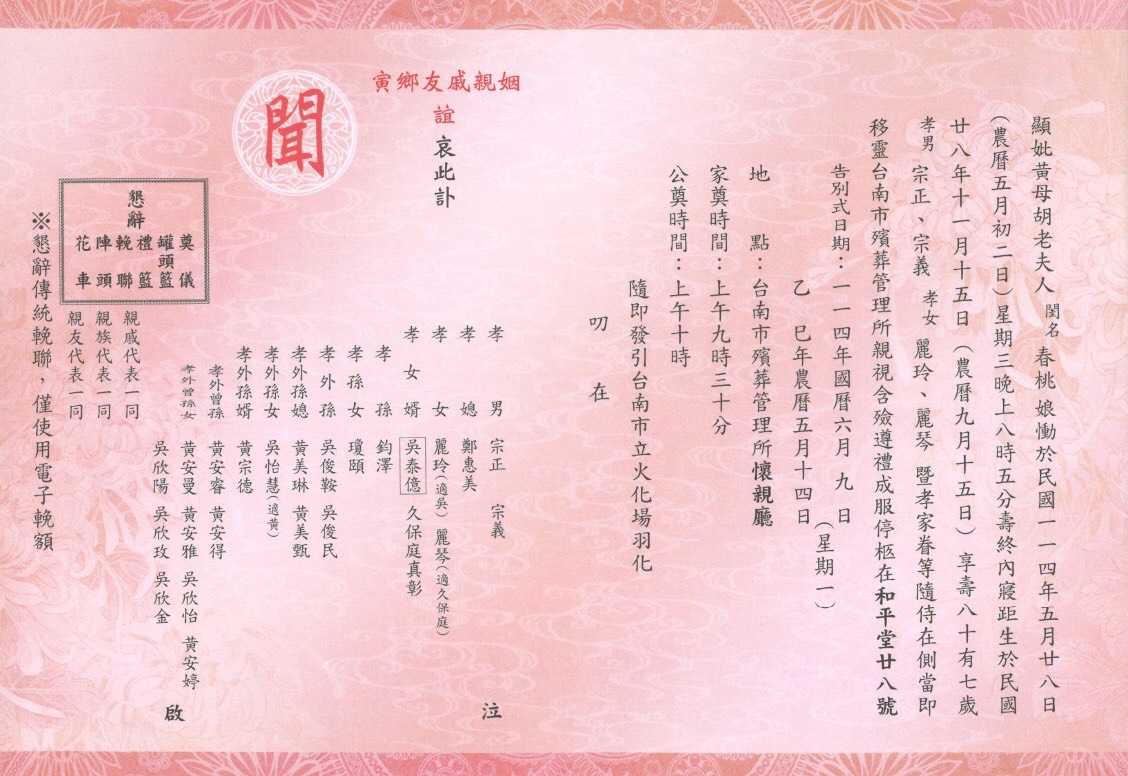 顯妣黃母胡老夫人閨名春桃 娘慟於民國一一四年五月廿八日
(農曆五月初二日)星期三晚上八時五分壽終內寢距生於民國
廿八年十一月十五日(農曆九月十五日)享壽八十有七歲
孝男 宗正、宗義 孝女 麗玲、麗琴 暨孝家眷等隨侍在側當即
移靈台南市殯葬管理所親視含殮遵禮成服停柩在和平堂廿八號
告別式日期:一一四年國曆六月九日
乙巳年農曆五月十四日
(星期一)
地 點:台南市殯葬管理所懷親廳
家奠時間:上午九時三十分
公奠時間:上午十時
隨即發引台南市立火化場羽化
叨 在
姻親戚友鄉寅
誼 哀此訃
聞
孝男 宗正 宗義
孝媳 鄭惠美
孝女 麗玲(適吳) 麗琴(適久保庭)
孝女婿 吳泰億 久保庭真彰
孝孫 鈞澤
孝孫女 瓊頤
孝外孫 吳俊鞍 吳俊民
孝外孫媳 黃美琳 黃美甄
孝外孫女 吳怡慧(適黃)
孝外孫婿 黃宗德
孝外曾孫 黃安睿 黃安得
孝外曾孫女 黃安曼 黃安雅 吳欣怡 黃安婷
吳欣陽 吳欣玫 吳欣金
親戚代表一同
親族代表一同
親友代表一同
泣
啟
懇辭
奠儀
罐頭籃
禮籃
輓聯
陣頭
花車
※懇辭傳統輓聯,僅使用電子輓額